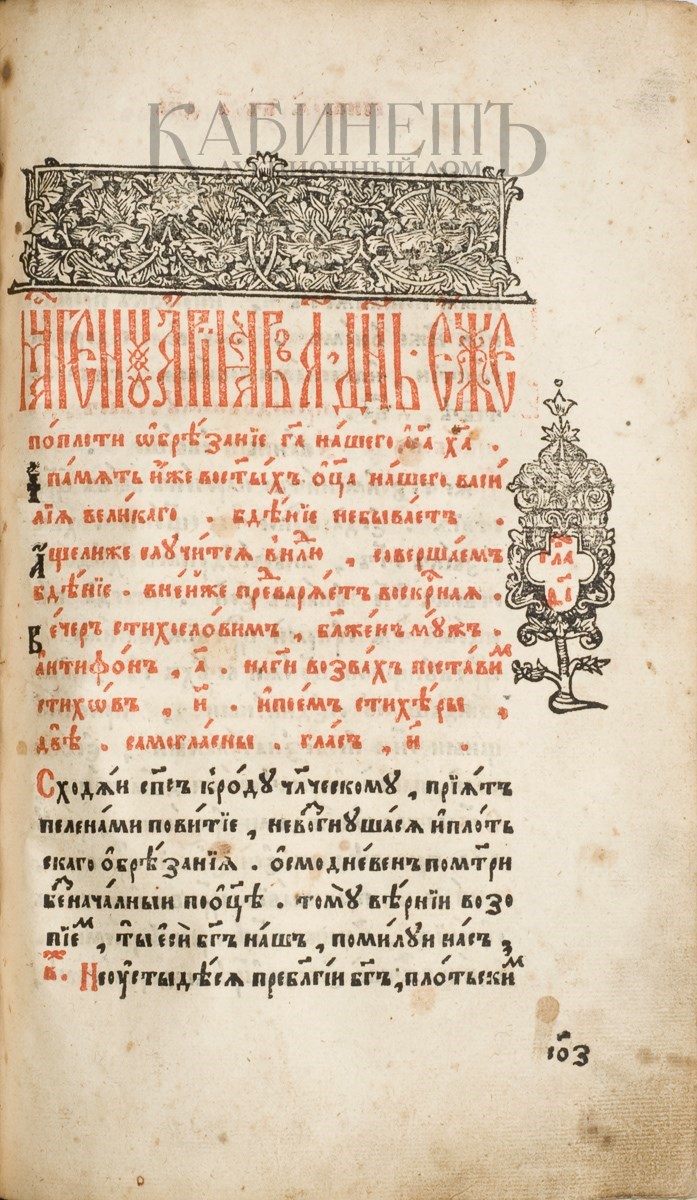 КАБИНЕТЪ
АУКЦИОННЫЙ ДОМ
по́плоти ѡ҆брѣ́занїе га҃ на́шего і҆са҃ ха҃ .
и҆ па́мѧть и҆́же во ст҃ы́хъ ѻ҆ц҃а на́шего васи́
лїѧ вели́каго . бдѣ́нїе небыва́етъ .
А҆щелиже слꙋчи́тсѧ внⷣлю , соверша́емъ
бдѣ́нїе . вне́йже преварѧ́етъ воскрⷭнаѧ .
Ве́черъ стихосло́вимъ , бл҃же́нъ мꙋ́жъ .
а҆нтифо́нъ , а҃ . на ги҃ возва́хъ поста́виⷨ
стихѡ́въ , и҃ . и҆пое́мъ стихѣ́ры ,
двѣ̀ . самогла́сны . гла́съ , и҃ .
Сходѧ́й сп҃съ к ро́дꙋ чл҃ческомꙋ , прїѧ́тъ
пелена́ми пови́тїе , невоⷥгнꙋша́сѧ и҆пло́ть
скаго ѻ҆брѣ́занїѧ . ѻ҆смодне́венъ помт҃ри
беⷥнача́лныи поѻ҆ц҃ѣ̀ . томꙋ̀ вѣ́рнїи возо
пїеⷨ , ты̀ є҆сѝ бг҃ъ на́шъ , поми́лꙋи на́съ ,
в҃. Неоу҆стыдѣ́сѧ пребл҃гі́и бг҃ъ , пло́тьскиⷨ
гла
в҃і